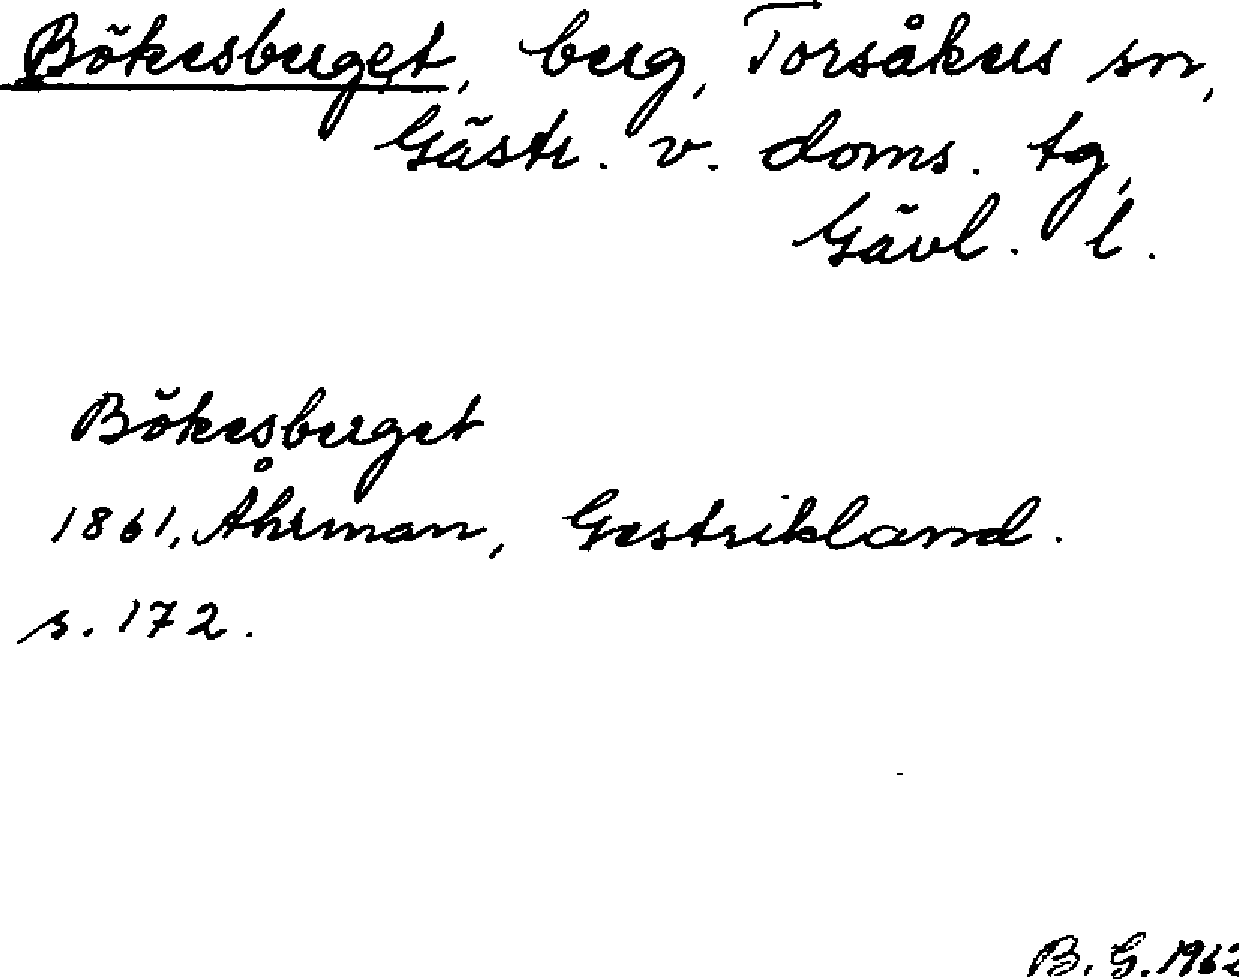 Bökesberget, berg, Torsåkers sn,
Gästr. v. doms. tg,
Gävl. l.
Bökesberget
1861, Åhrman, Gestrikland.
s. 172.
B. G. 1962